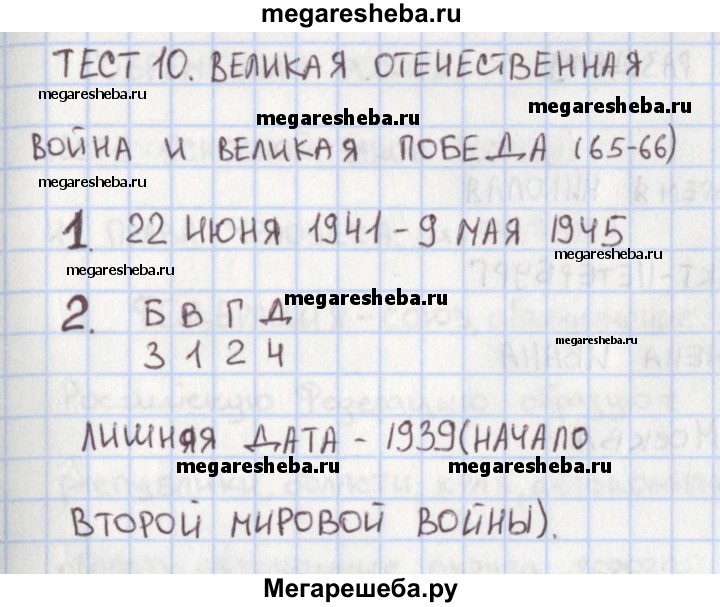 megaresheba.ru
ТЕСТ 10. ВЕЛИКАЯ ОТЕЧЕСТВЕННАЯ
megaresheba.ru
megaresheba.ru
megaresheba.ru
ВОЙНА И ВЕЛИКАЯ ПОБЕДА (65-66)
megaresheba.ru
megaresheba.ru
1. 22 ИЮНЯ 1941 - 9 МАЯ 1945
megaresheba.ru
megaresheba.ru
megaresheba.ru
2. Б В Г Д
megaresheba.ru
3 1 2 4
ЛИШНЯЯ ДАТА - 1939 (НАЧАЛО
megaresheba.ru
megaresheba.ru
ВТОРОЙ МИРОВОЙ ВОЙНЫ).
Мегарешеба.ру